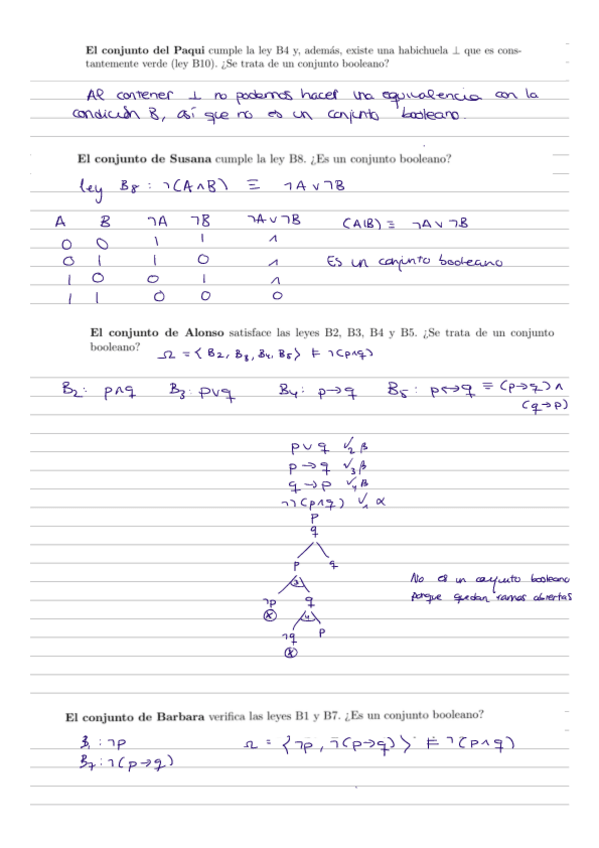 El conjunto del Paqui cumple la ley B4 y, además, existe una habichuela ⊥ que es cons-
tantemente verde (ley B10). ¿Se trata de un conjunto booleano?
Al contener ⊥ no podemos hacer una equivalencia con la
condición B, así que no es un conjunto booleano.
El conjunto de Susana cumple la ley B8. ¿Es un conjunto booleano?
ley B8 : ¬(A∧B) ≡ ¬A∨¬B
A B ¬A ¬B ¬A∨¬B (A|B) ≡ ¬A∨¬B
0 0 1 1 1
0 1 1 0 1 Es un conjunto booleano
1 0 0 1 1
1 1 0 0 0
El conjunto de Alonso satisface las leyes B2, B3, B4 y B5. ¿Se trata de un conjunto
booleano? Ω = {B2, B3, B4, B5} ⊨ ¬(p∧q)
B2: p∧q B3: p∨q B4: p→q B5: p↔q ≡ (p→q)∧
(q→p)
p∨q ✓2 β
p→q ✓3 β
q→p ✓4 β
¬¬(p∧q) ✓1 α
p
q
p q
3
¬p q
⊗ 4
¬q p
⊗
No es un conjunto booleano
porque quedan ramas abiertas
El conjunto de Barbara verifica las leyes B1 y B7. ¿Es un conjunto booleano?
B1 : ¬p Ω = {¬p, ¬(p→q)} ⊨ ¬(p∧q)
B7 : ¬(p→q)